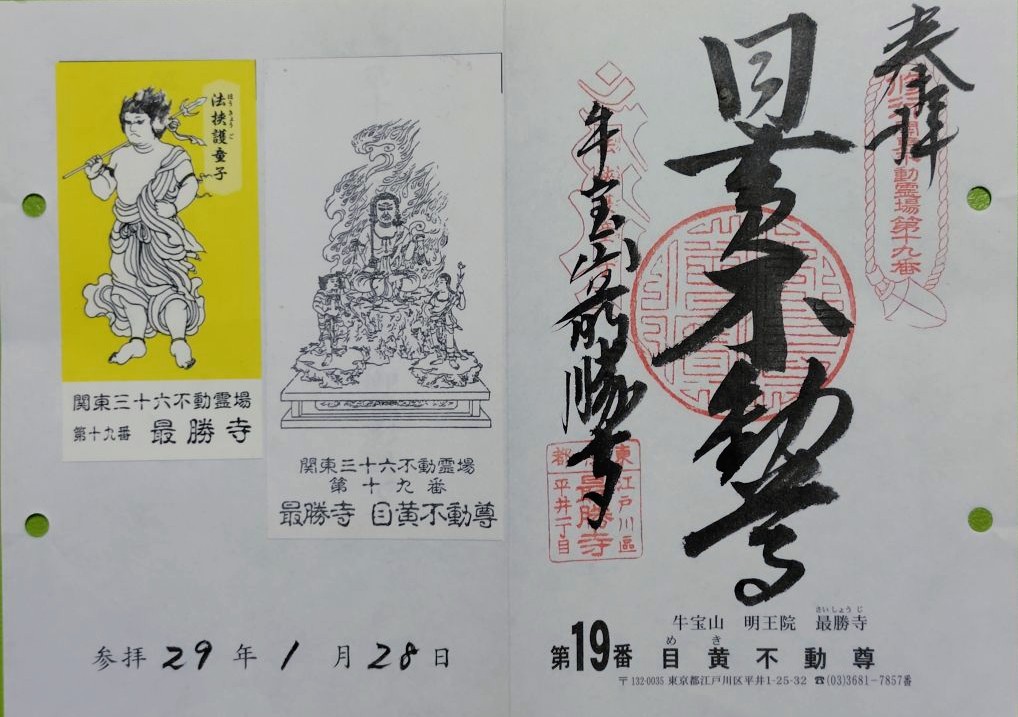 奉拝
目黄不動尊
牛宝山最勝寺
関東
動霊場第十九番
東京都
江戸川區
最勝寺
平井一丁目
牛宝山 明王院 最勝寺
さいしょうじ
第19番 目黄不動尊
めき
〒132-0035 東京都江戸川区平井1-25-32 ☎(03)3681-7857番
法挟護童子
ほうきょうご
関東三十六不動霊場
第十九番 最勝寺
関東三十六不動霊場
第十九番
最勝寺 目黄不動尊
参拝 29 年 1 月 28 日